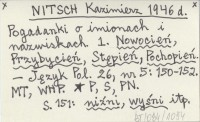 NITSCH Kazimierz 1946 d.
Pogadanki o imionach i
nazwiskach 1. Nowocień,
Przybycień, Stępień, Pochopień.
— Język Pol. 26, nr 5: 150-152.
MT, WHP. * P, S, PN.
S. 151: niżni, wyżni itp.